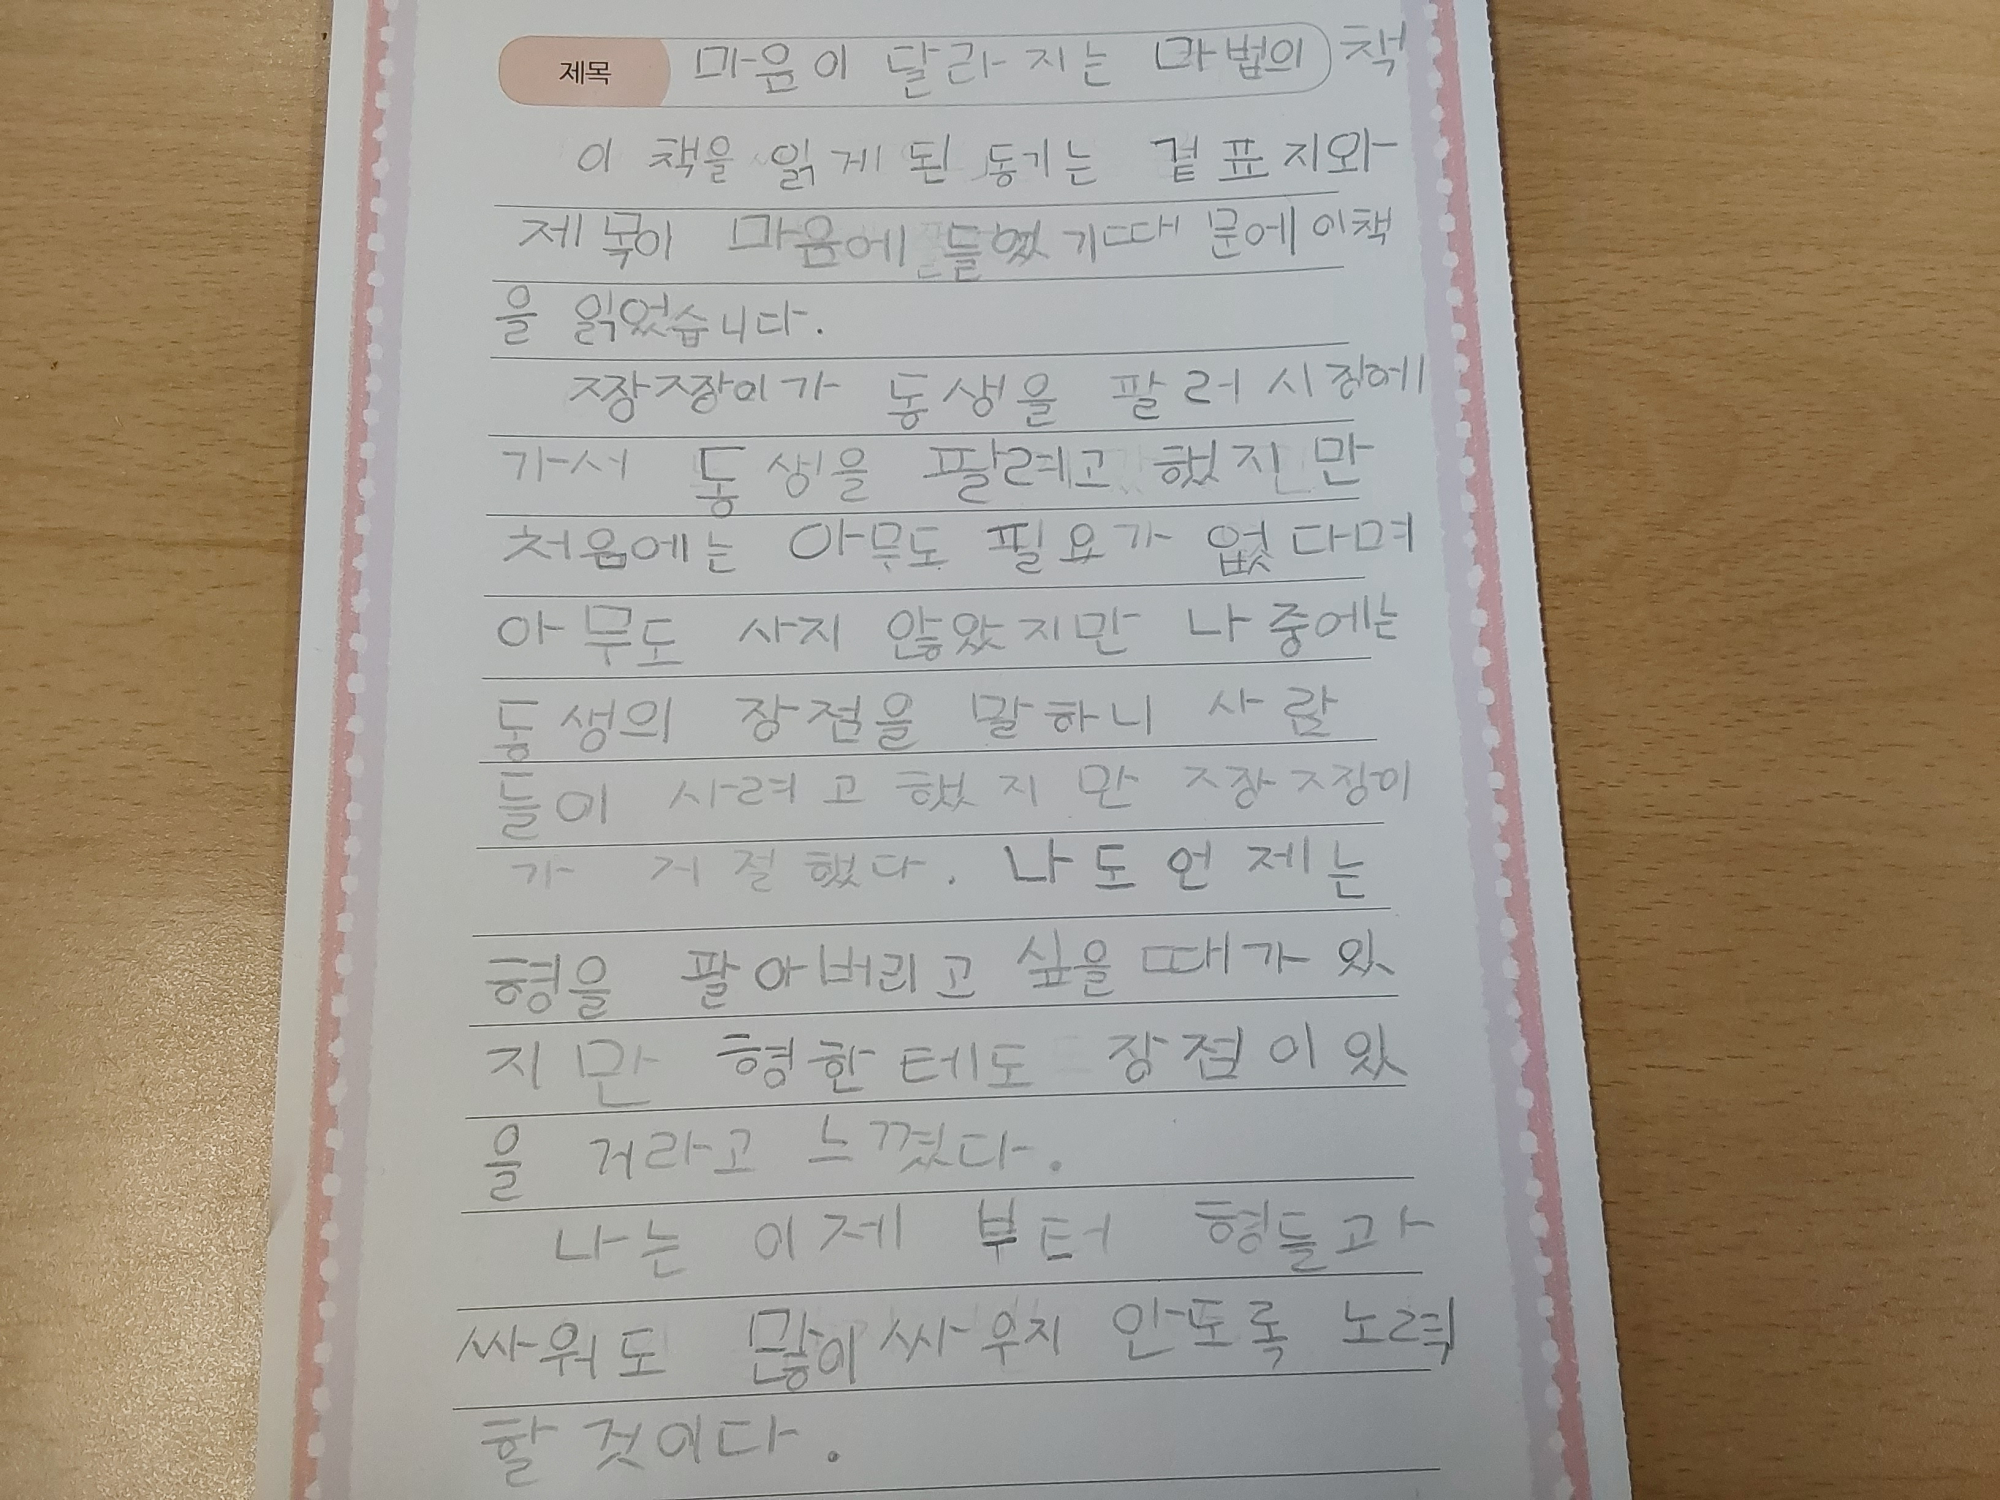 제목 마음이 달라지는 마법의 책
이 책을 읽게 된 동기는 겉표지와
제목이 마음에 들었기때문에 이책
을 읽었습니다.
짱짱이가 동생을 팔러 시장에
가서 동생을 팔려고 했지만
처음에는 아무도 필요가 없다며
아무도 사지 않았지만 나중에는
동생의 장점을 말하니 사람
들이 사려고 했지만 짱짱이
가 거절했다. 나도 언제는
형을 팔아버리고 싶을 때가 있
지만 형한테도 장점이 있
을 거라고 느꼈다.
나는 이제 부터 형들과
싸워도 많이 싸우지 안도록 노력
할 것이다.